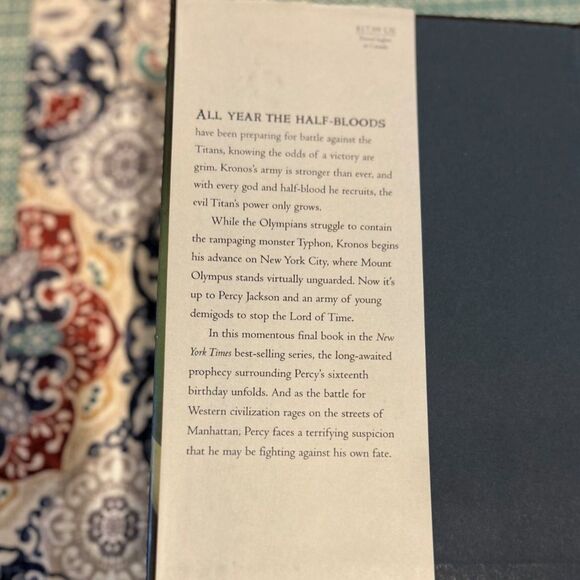 $17.99 US
ALL YEAR THE HALF-BLOODS
have been preparing for battle against the
Titans, knowing the odds of a victory are
grim. Kronos's army is stronger than ever, and
with every god and half-blood he recruits, the
evil Titan's power only grows.
While the Olympians struggle to contain
the rampaging monster Typhon, Kronos begins
his advance on New York City, where Mount
Olympus stands virtually unguarded. Now it's
up to Percy Jackson and an army of young
demigods to stop the Lord of Time.
In this momentous final book in the New
York Times best-selling series, the long-awaited
prophecy surrounding Percy's sixteenth
birthday unfolds. And as the battle for
Western civilization rages on the streets of
Manhattan, Percy faces a terrifying suspicion
that he may be fighting against his own fate.